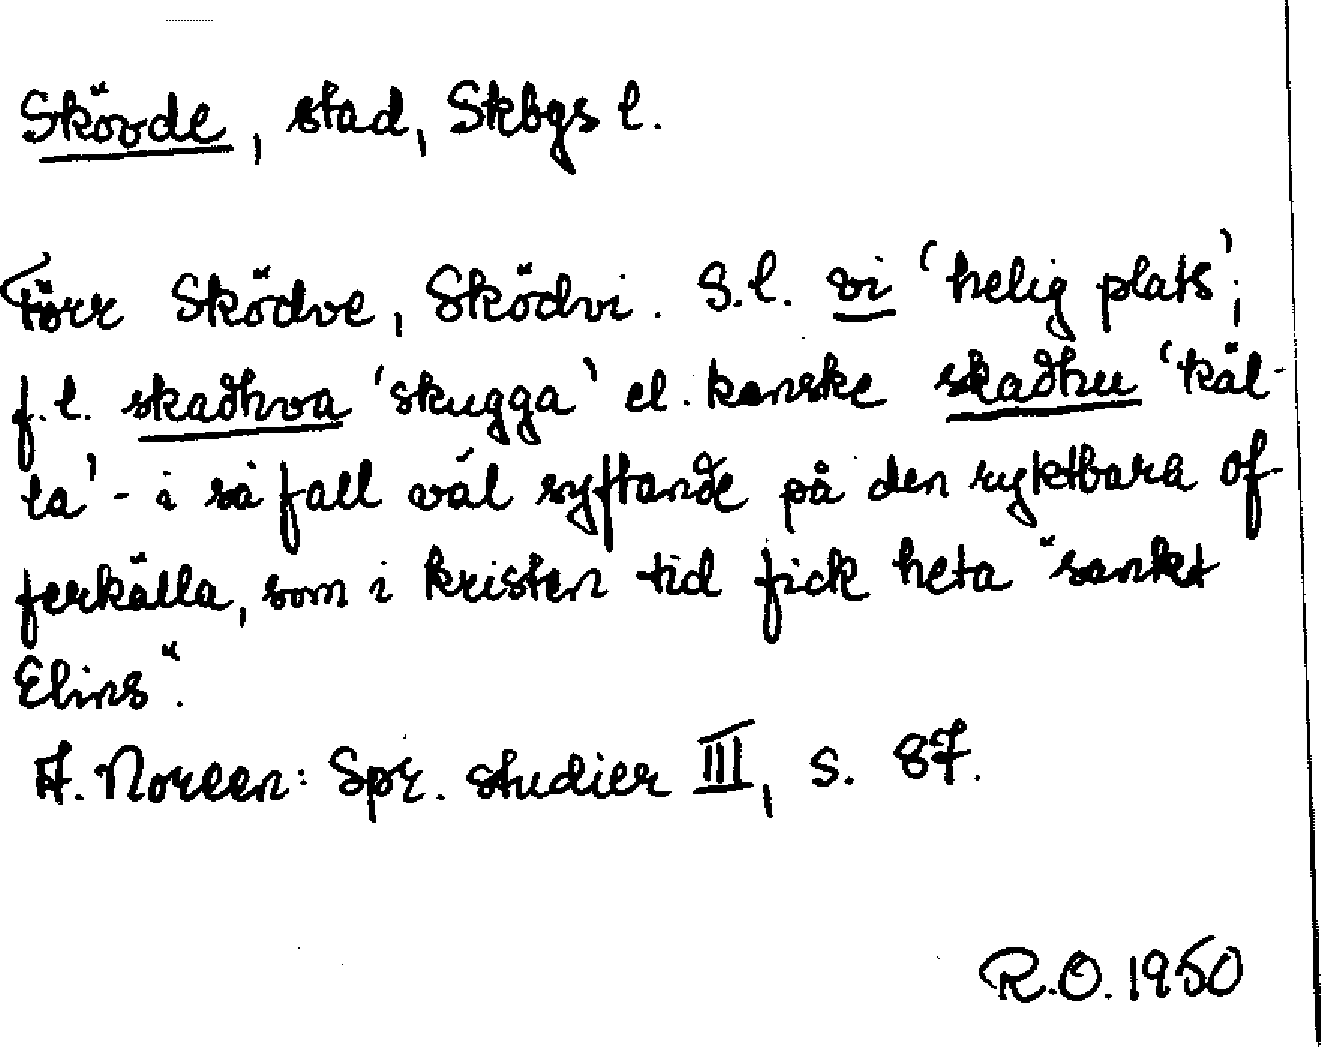 Skövde, stad, Skbgs l.
Förr Sködve, Sködvi. S.l. vi 'helig plats';
f.l. skadhva 'skugga' el. kanske skadhu 'käl-
la' - i så fall väl syftande på den ryktbara of-
ferkälla, som i kristen tid fick heta "sankt
Elins".
A. Noreen: Spr. studier III, s. 87.
R.O. 1950